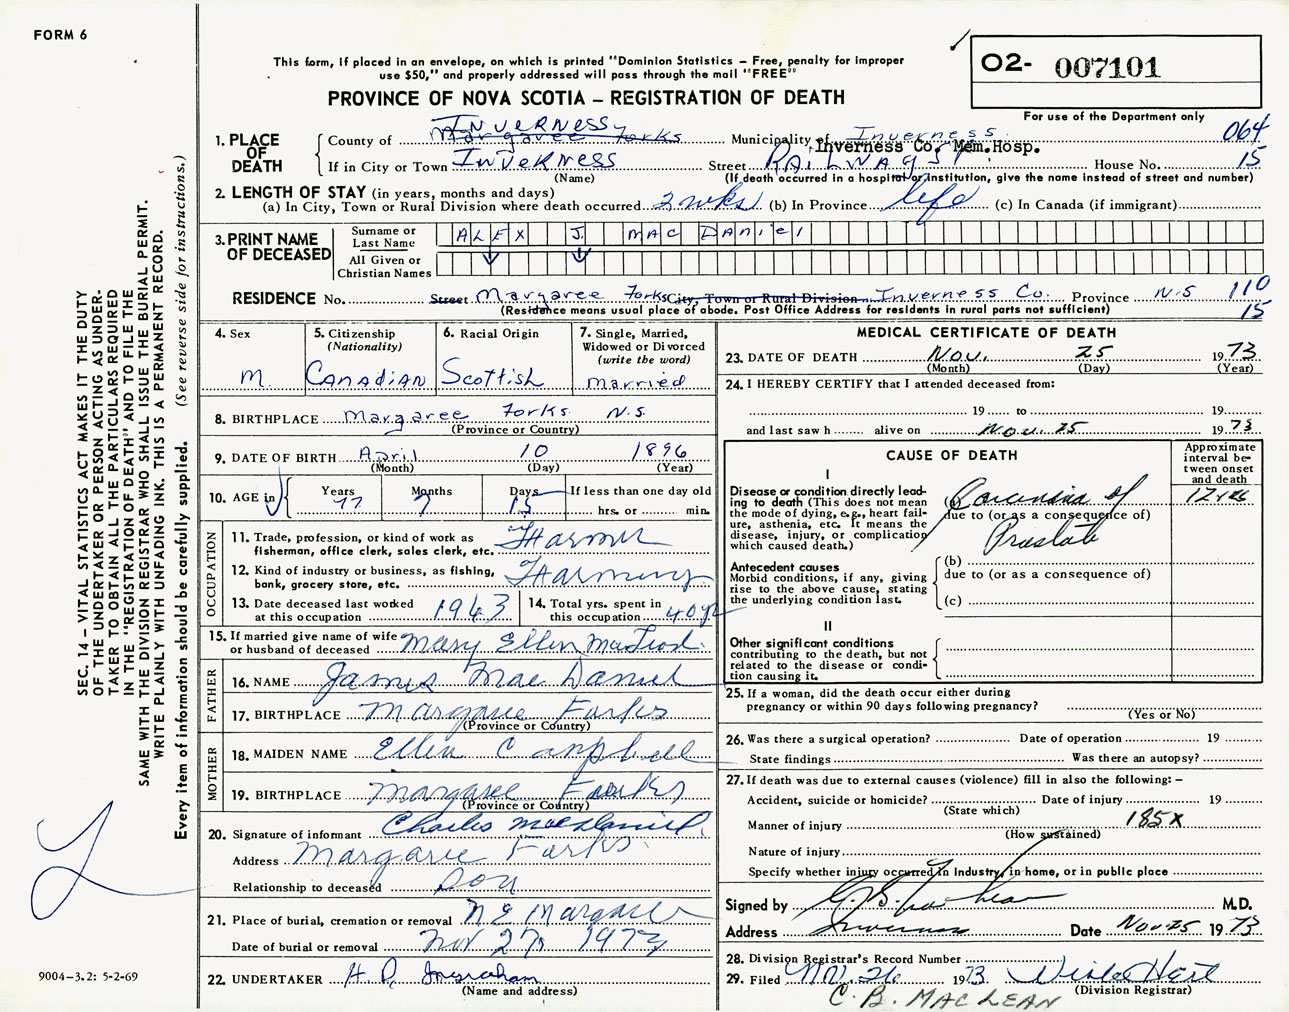 FORM 6
This form, if placed in an envelope, on which is printed "Dominion Statistics – Free, penalty for improper
use $50," and properly addressed will pass through the mail "FREE"
O2- 007101
For use of the Department only
PROVINCE OF NOVA SCOTIA – REGISTRATION OF DEATH
1. PLACE OF DEATH
County of Margaree Forks Inverness Municipality of Inverness 064
Inverness Co. Mem. Hosp.
If in City or Town Inverness Street Railway St. House No. 15
(Name) (If death occurred in a hospital or institution, give the name instead of street and number)
2. LENGTH OF STAY (in years, months and days)
(a) In City, Town or Rural Division where death occurred 2 wks (b) In Province life (c) In Canada (if immigrant)
3. PRINT NAME OF DECEASED
Surname or Last Name ALEX J. MAC DANIEL
All Given or Christian Names
RESIDENCE No. Street Margaree Forks City, Town or Rural Division Inverness Co. Province N.S 110
(Residence means usual place of abode. Post Office Address for residents in rural parts not sufficient) 15
4. Sex M.
5. Citizenship (Nationality) Canadian
6. Racial Origin Scottish
7. Single, Married, Widowed or Divorced (write the word) married
8. BIRTHPLACE Margaree Forks N.S.
(Province or Country)
9. DATE OF BIRTH April 10 1896
(Month) (Day) (Year)
10. AGE in Years 77 Months 7 Days 15 If less than one day old
hrs. or min.
OCCUPATION
11. Trade, profession, or kind of work as
fisherman, office clerk, sales clerk, etc. Farmer
12. Kind of industry or business, as fishing,
bank, grocery store, etc. Farming
13. Date deceased last worked
at this occupation 1963
14. Total yrs. spent in
this occupation 40 yr
15. If married give name of wife
or husband of deceased Mary Ellen MacLeod
FATHER
16. NAME James MacDaniel
17. BIRTHPLACE Margaree Forks
(Province or Country)
MOTHER
18. MAIDEN NAME Ellen Campbell
19. BIRTHPLACE Margaree Forks
(Province or Country)
20. Signature of informant Charles MacDaniel
Address Margaree Forks
Relationship to deceased Son
21. Place of burial, cremation or removal N E Margaree
Date of burial or removal Nov 27, 1973
22. UNDERTAKER H. D. Ingraham
(Name and address)
MEDICAL CERTIFICATE OF DEATH
23. DATE OF DEATH Nov. 25 1973
(Month) (Day) (Year)
24. I HEREBY CERTIFY that I attended deceased from:
19 to 19
and last saw h alive on Nov. 25 1973
CAUSE OF DEATH
Approximate interval between onset and death
I
Disease or condition directly lead-
ing to death (This does not mean
the mode of dying, e.g., heart fail-
ure, asthenia, etc. It means the
disease, injury, or complication
which caused death.)
(a) Carcinoma of
due to (or as a consequence of)
Prostate
Antecedent causes
Morbid conditions, if any, giving
rise to the above cause, stating
the underlying condition last.
(b)
due to (or as a consequence of)
(c)
II
Other significant conditions
contributing to the death, but not
related to the disease or condi-
tion causing it.
25. If a woman, did the death occur either during
pregnancy or within 90 days following pregnancy?
(Yes or No)
26. Was there a surgical operation? Date of operation 19
State findings Was there an autopsy?
27. If death was due to external causes (violence) fill in also the following: –
Accident, suicide or homicide? Date of injury 19
(State which)
Manner of injury 185X
(How sustained)
Nature of injury
Specify whether injury occurred in industry, in home, or in public place
Signed by M.D.
Address Inverness Date Nov 25 1973
28. Division Registrar's Record Number
29. Filed Nov. 26 1973
(Division Registrar)
C. B. MACLEAN
SEC. 14 – VITAL STATISTICS ACT MAKES IT THE DUTY
OF THE UNDERTAKER OR PERSON ACTING AS UNDER-
TAKER TO OBTAIN ALL THE PARTICULARS REQUIRED
IN THE "REGISTRATION OF DEATH" AND TO FILE THE
SAME WITH THE DIVISION REGISTRAR WHO SHALL ISSUE THE BURIAL PERMIT.
WRITE PLAINLY WITH UNFADING INK. THIS IS A PERMANENT RECORD.
Every item of information should be carefully supplied. (See reverse side for instructions.)
9004–3.2: 5-2-69